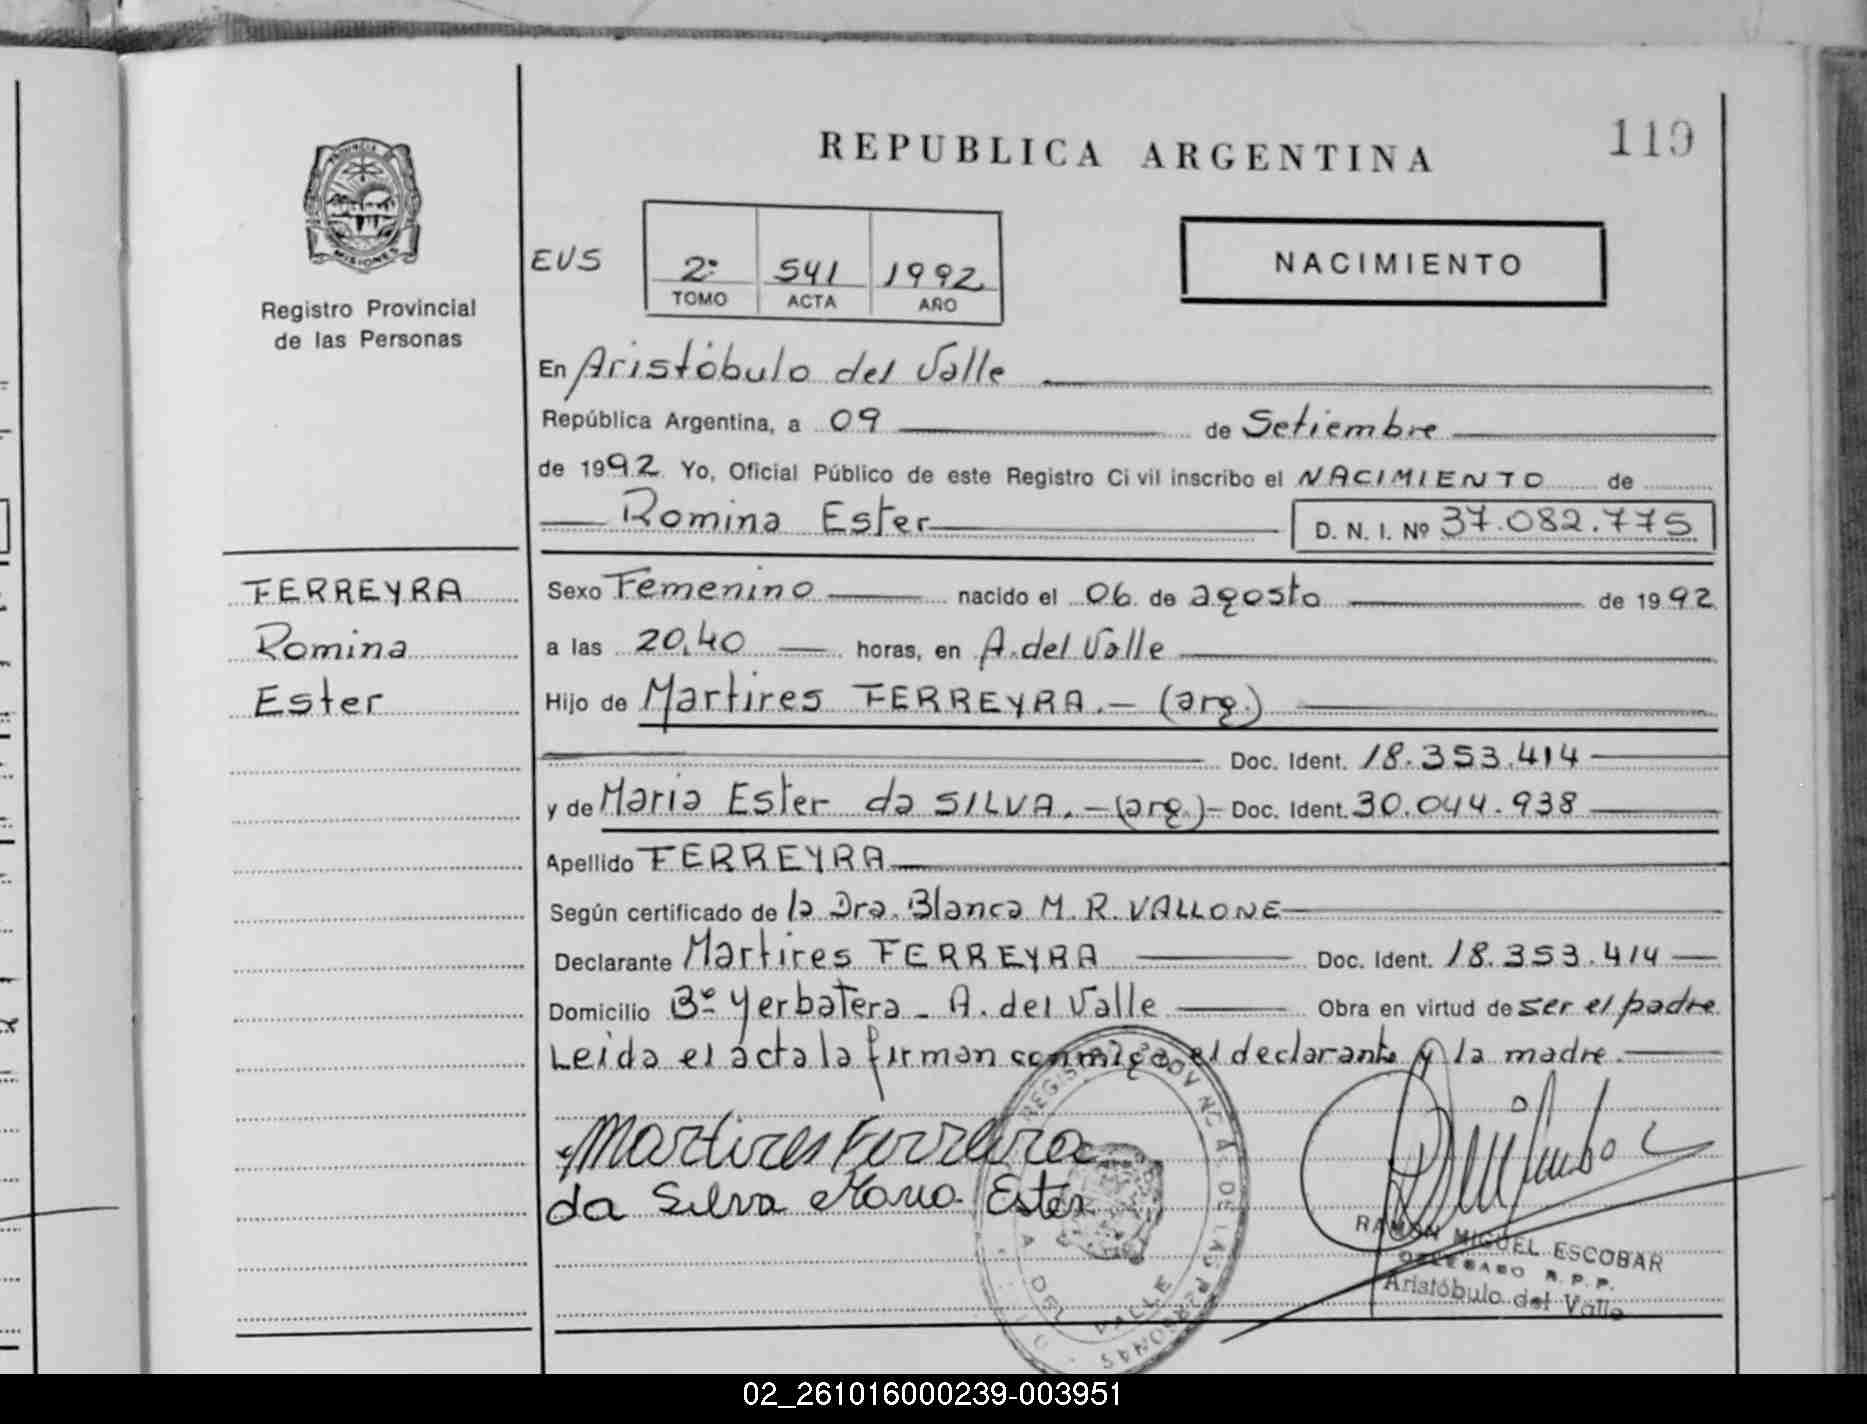 REPUBLICA ARGENTINA
119
PROVINCIA DE
MISIONES
Registro Provincial
de las Personas
EVS
2º 541 1992
TOMO ACTA AÑO
NACIMIENTO
En Aristóbulo del Valle
República Argentina, a 09 de Setiembre
de 1992. Yo, Oficial Público de este Registro Civil inscribo el NACIMIENTO de
Romina Ester D. N. I. Nº 37.082.775
FERREYRA
Romina
Ester
Sexo Femenino nacido el 06 de agosto de 1992
a las 20,40 horas, en A. del Valle
Hijo de Martires FERREYRA.- (arg.)
Doc. Ident. 18.353.414
y de Maria Ester da SILVA.-(arg.)- Doc. Ident. 30.044.938
Apellido FERREYRA
Según certificado de la Dra. Blanca M. R. VALLONE
Declarante Martires FERREYRA Doc. Ident. 18.353.414
Domicilio Bº Yerbatera - A. del Valle Obra en virtud de ser el padre.
Leida el acta la firman conmigo el declarante y la madre.
Martires Ferreira
da Silva Maria Ester
REGISTRO PROVINCIAL DE LAS PERSONAS
A. DEL VALLE
RAMON MIGUEL ESCOBAR
DELEGADO R.P.P.
Aristóbulo del Valle
02_261016000239-003951